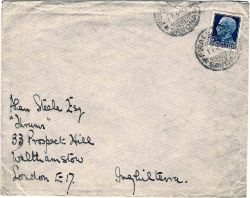 Alan Steele Esq
"Thrums"
33 Prospect Hill
Walthamstow
London E.17.
Inghilterra.